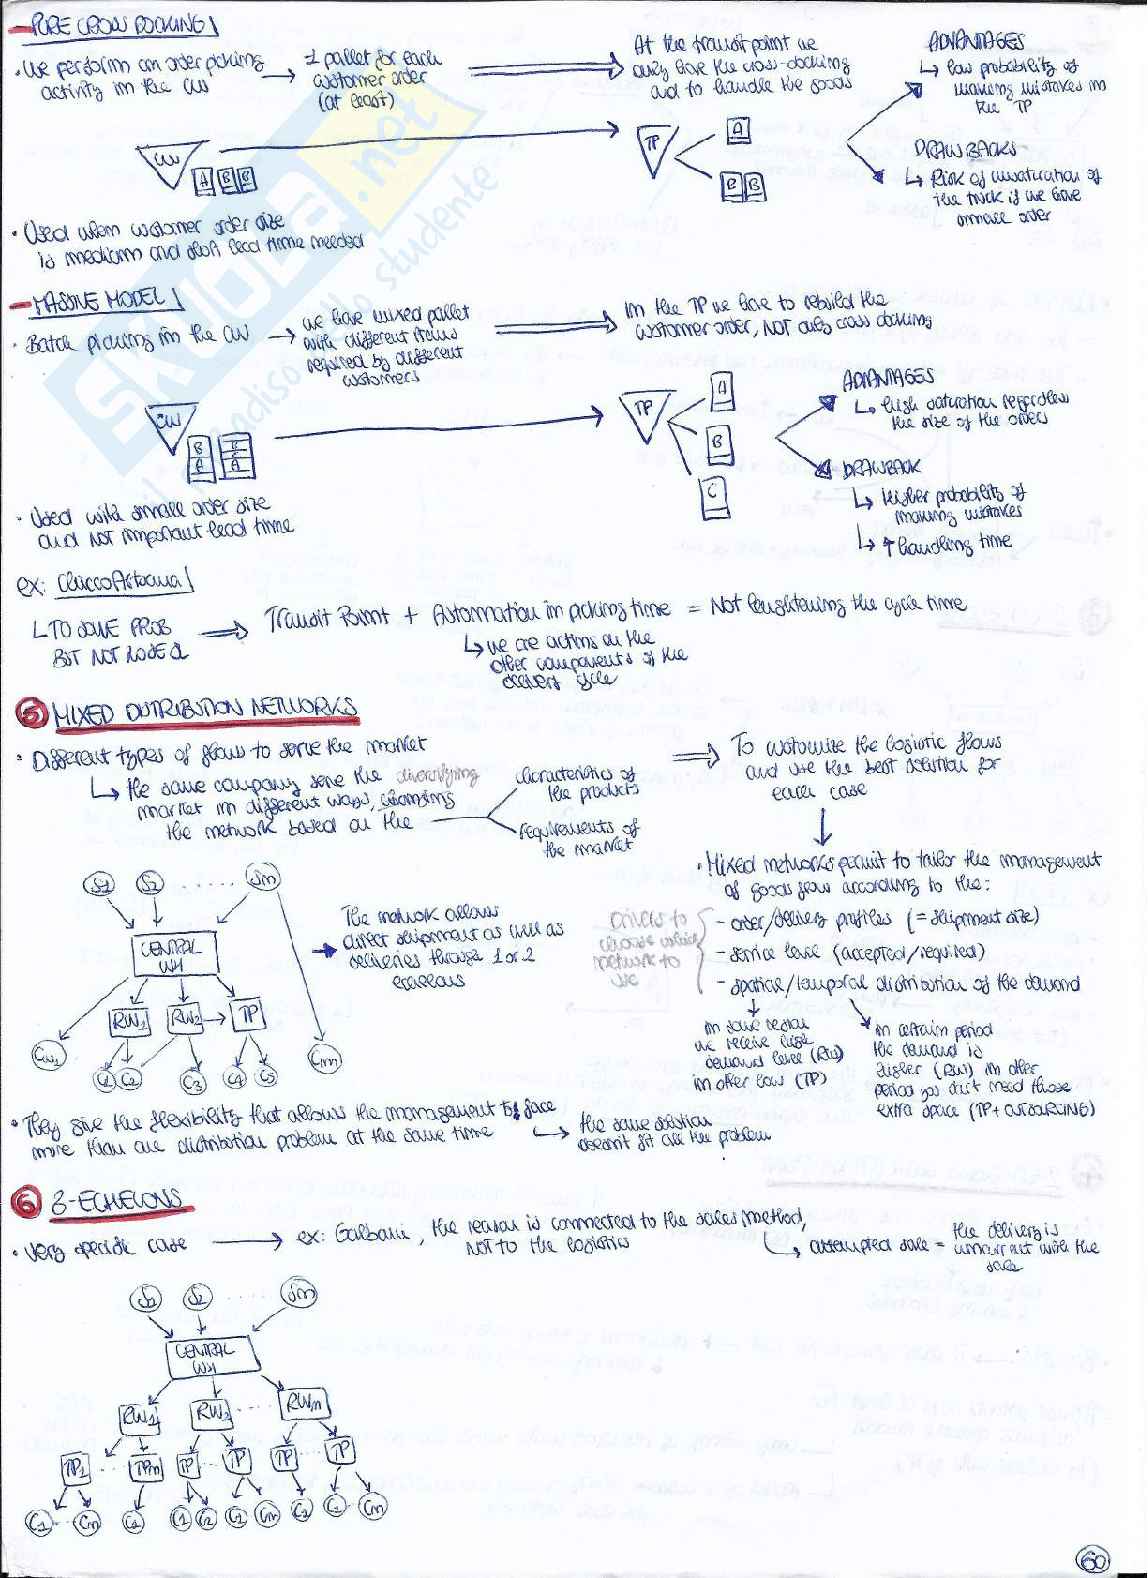 - PURE CROSS DOCKING
• We perform an order picking
activity in the CW
1 pallet for each
customer order
(at least)
At the transit point we
only have the cross-docking
and to handle the goods
ADVANTAGES
↳ low probability of
making mistakes in
the TP
DRAWBACKS
↳ Risk of unsaturation of
the truck if we have
small order
CW
A B B
TP
A
B B
• Used when customer order size
is medium and short lead time needed
- MASSIVE MODEL
• Batch picking in the CW
we have mixed pallet
with different items
required by different
customers
In the TP we have to rebuild the
customer order, NOT only cross docking
CW
B
A
B
C
A
TP
A
B
C
ADVANTAGES
↳ high saturation regardless
the size of the orders
DRAWBACK
↳ Higher probability of
making mistakes
↳ ↑ handling time
• Used with small order size
and NOT important lead time
ex: Chicco Artsana
↳ TO SOLVE PROB
BUT NOT
Transit Point + Automation in picking time = Not lengthening the cycle time
↳ we are acting on the
other components of the
delivery cycle
5 MIXED DISTRIBUTION NETWORKS
• Different types of flows to serve the market
↳ the same company serve the diversifying
market in different ways, changing
the network based on the
characteristics of
the products
requirements of
the market
To customize the logistic flows
and use the best solution for
each case
• Mixed networks permit to tailor the management
of goods flow according to the:
drivers to
choose which
network to
use
- order/delivery profiles (= shipment size)
- service level (accepted/required)
- spatial/temporal distribution of the demand
in some region
we receive high
demand level (RW)
in other low (TP)
in certain period
the demand is
higher (RW) in other
period you don't need those
extra space (TP + OUTSOURCING)
S1 S2 ..... Sm
CENTRAL
WH
RW1 RW2 TP
C1 C2 C3 C4 C5 Cm
The network allows
direct shipment as well as
deliveries through 1 or 2
echelons
• They give the flexibility that allows the management to face
more than one distribution problem at the same time
↳ the same solution
doesn't fit all the problem
6 3-ECHELONS
• Very specific case
ex: Galbani, the reason is connected to the sales method,
NOT to the logistics
↳ attempted sale =
the delivery is
concurrent with the
sale
S1 S2 ..... Sm
CENTRAL
WH
RW1 RW2 ... RWm
TP1 ... TPm TP TP TP ... TP
C1 .. Cm C1 C1 C2 C1 Cm C2 C1 Cm
60
SKUOLA.net
il paradiso dello studente